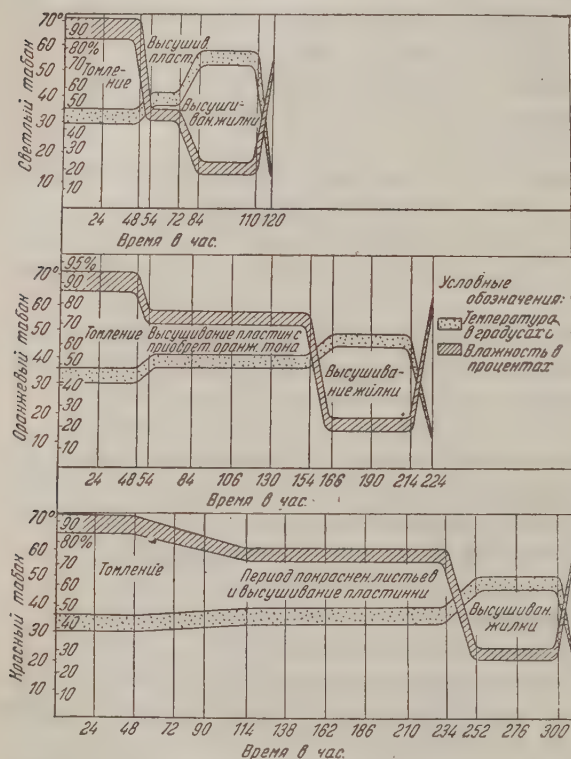 Светлый табан
70°
60
50
40
30
20
10
90
80%
70
60
50
40
30
20
10
Томле-
ние
Высушив.
пласт.
Высуши-
ван.жилки
24 48 54 72 84 110 120
Время в час.
Оранжевый табан
70°
60
50
40
30
20
10
95%
90
80
70
60
50
40
30
20
10
Томление
Высушивание пластин с
приобрет. оранж. тона
Высушива-
ние жилки
24 48 54 84 106 130 154 166 190 214 224
Время в час.
Условные
обозначения:
Температура
в градусах С
Влажность в
процентах
Красный табан
70°
60
50
40
30
20
10
90
80%
70
60
50
40
30
20
10
Томление
Период покраснен. листьев
и высушивание пластинки
Высушиван.
жилки
24 48 72 90 114 138 162 186 210 234 252 276 300
Время в час.